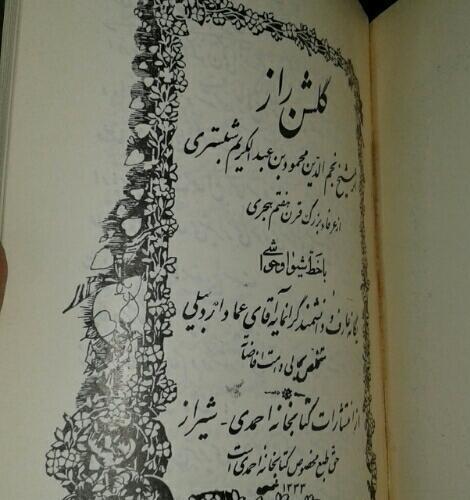 گلشن راز
از شیخ نجم الدین محمود بن عبدالکریم شبستری
از عرفاء بزرگ قرن هفتم هجری
با خط شیوا و حواشی
یگانه عارف و دانشمند گرانمایه آقای عماد اردبیلی
متخلص بحالی دامت افاضاته
از انتشارات کتابخانه احمدی - شیراز
حق طبع مخصوص کتابخانه احمدی است
۱۳۳۳